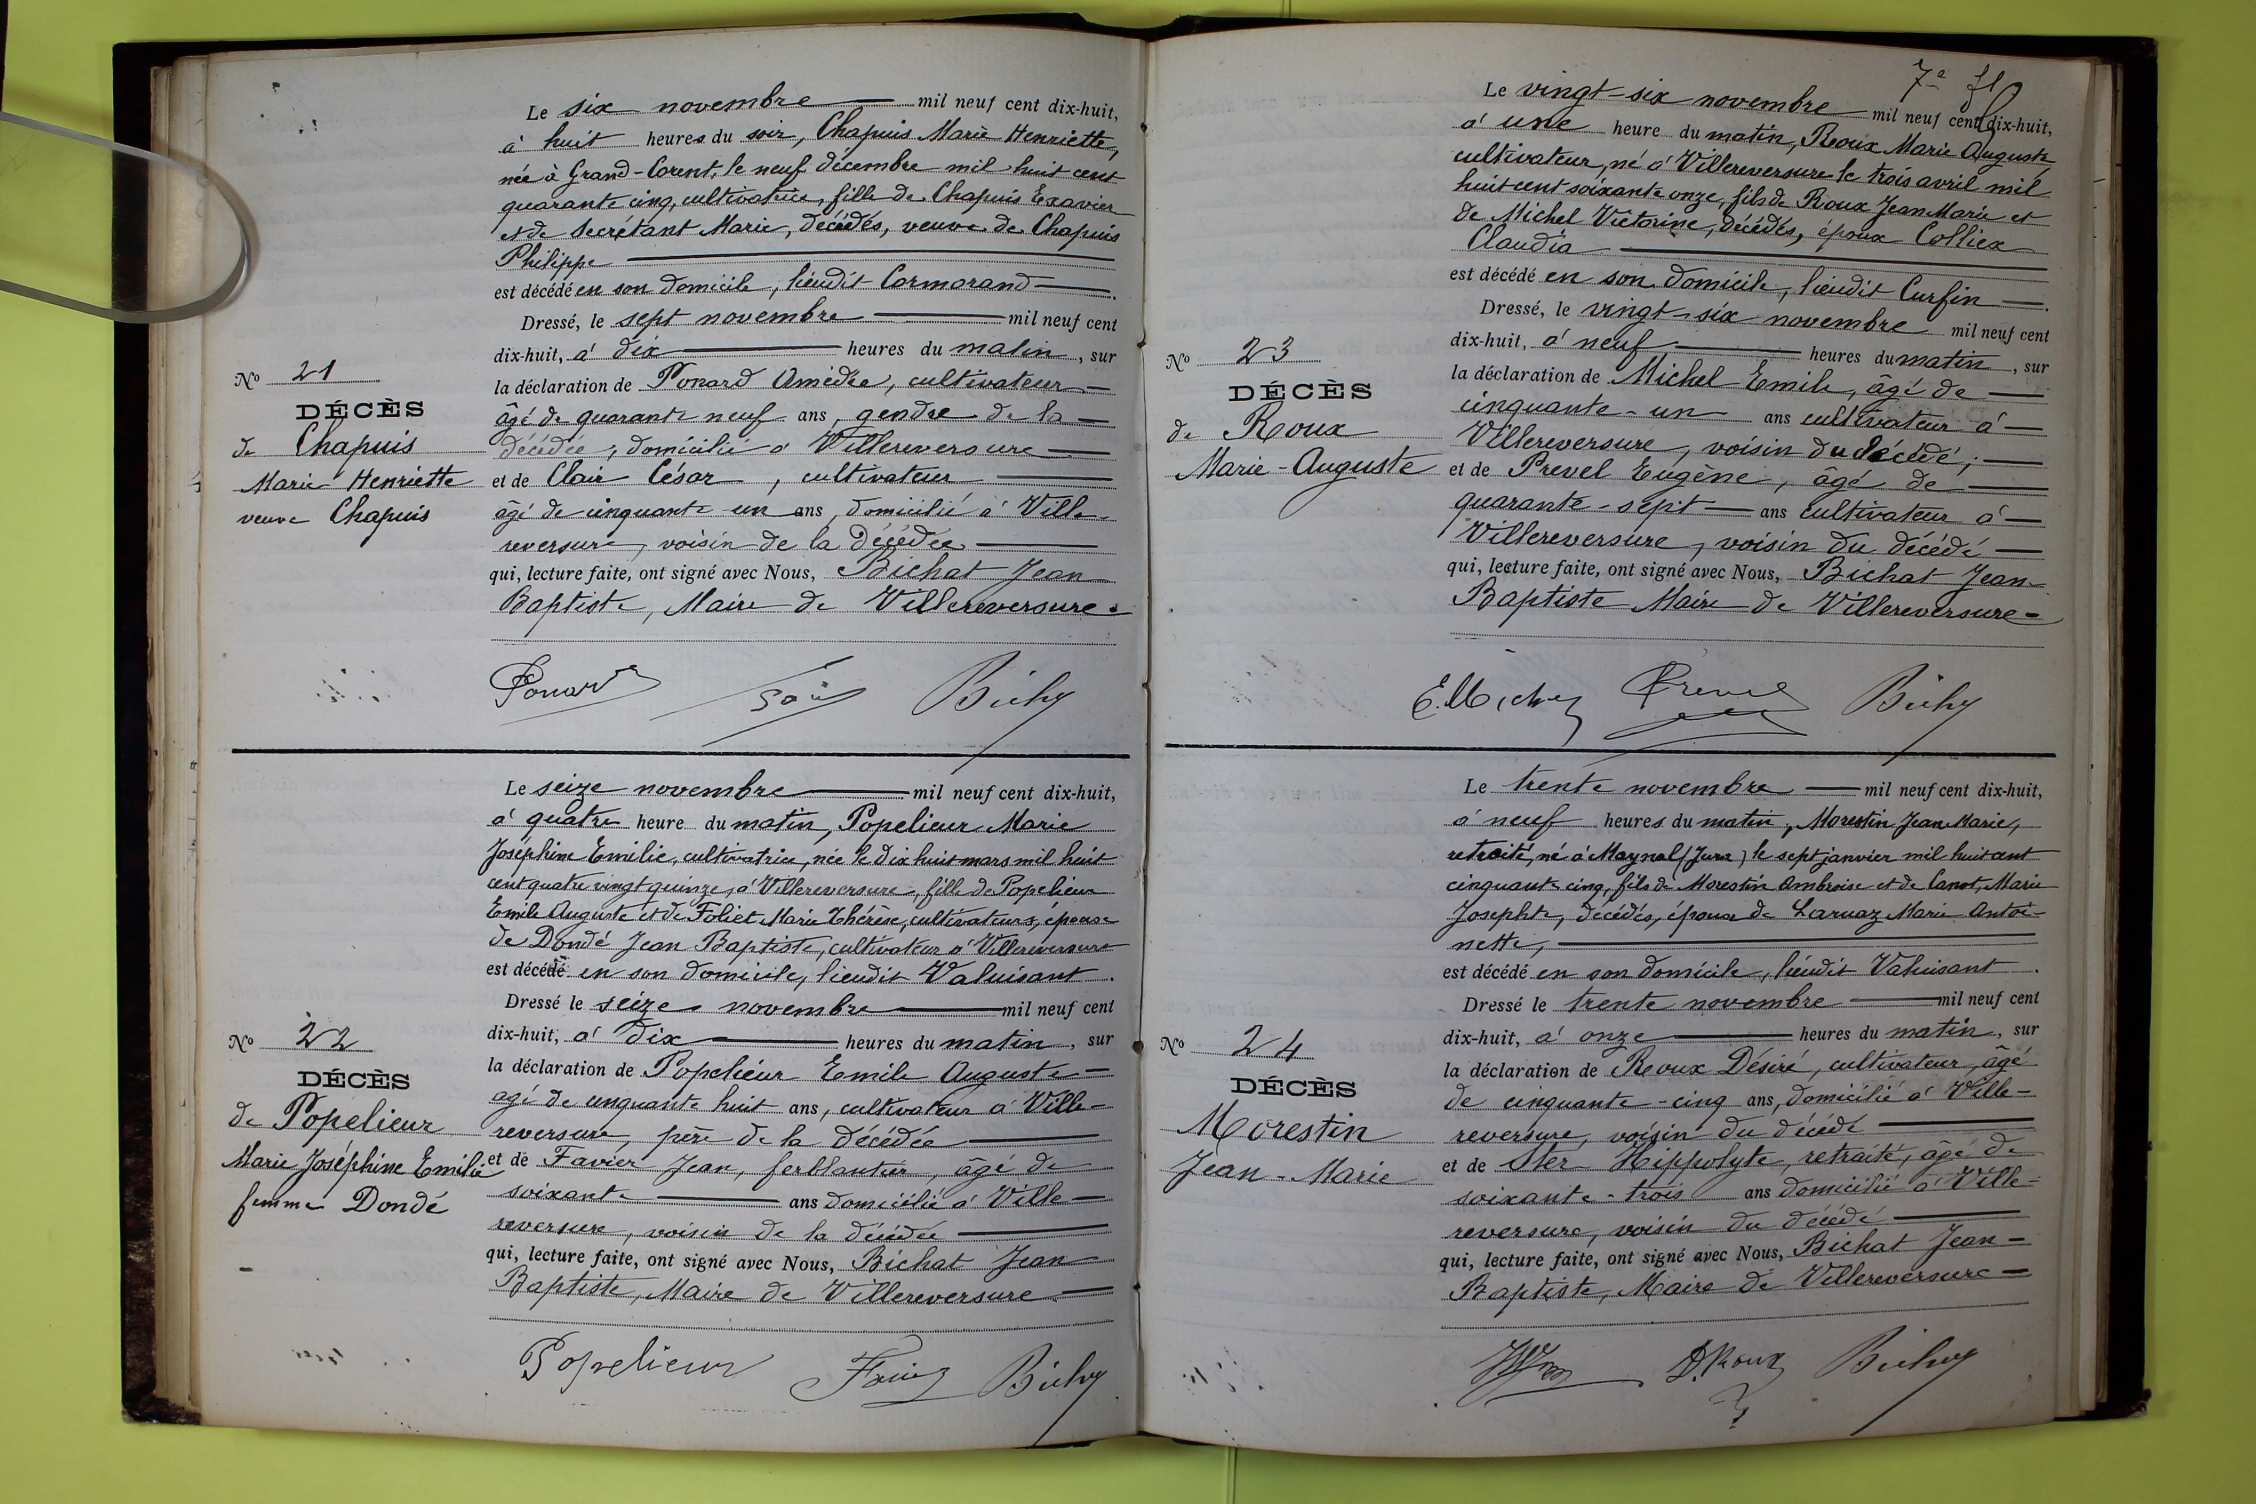 Le six novembre mil neuf cent dix-huit,
à huit heures du soir, Chapuis Marie Henriette,
née à Grand-Corent, le neuf décembre mil huit cent
quarante cinq, cultivatrice, fille de Chapuis Exavier
et de Secrétant Marie, décédés, veuve de Chapuis
Philippe
est décédé en son domicile, lieudit Cormorand.
Dressé, le sept novembre mil neuf cent
dix-huit, à dix heures du matin, sur
la déclaration de Ponard Amédée, cultivateur
âgé de quarante neuf ans, gendre de la
décédée, domicilié à Villereversure
et de Clair César, cultivateur
âgé de cinquante un ans, domicilié à Ville-
reversure, voisin de la décédée
qui, lecture faite, ont signé avec Nous, Bichat Jean
Baptiste, Maire de Villereversure.
Nº 21
DÉCÈS
de Chapuis
Marie Henriette
veuve Chapuis
Ponard
Bichat
Le seize novembre mil neuf cent dix-huit,
à quatre heure du matin, Popelieur Marie
Joséphine Emilie, cultivatrice, née le dix huit mars mil huit
cent quatre vingt quinze, à Villereversure, fille de Popelieur
Emile Auguste et de Foliet Marie Thérèse, cultivateurs, épouse
de Dondé Jean Baptiste, cultivateur à Villereversure
est décédé en son domicile, lieudit Valuisant.
Dressé le seize novembre mil neuf cent
dix-huit, à dix heures du matin, sur
la déclaration de Popelieur Emile Auguste
agé de cinquante huit ans, cultivateur à Ville-
reversure, père de la décédée
et de Favier Jean, ferblantier, âgé de
soixante ans domicilié à Ville
reversure, voisin de la décédée
qui, lecture faite, ont signé avec Nous, Bichat Jean
Baptiste, Maire de Villereversure
Nº 22
DÉCÈS
de Popelieur
Marie Joséphine Emilie
femme Dondé
Popelieur Favier Bichat
7e fl
Le vingt-six novembre mil neuf cent dix-huit,
à une heure du matin, Roux Marie Auguste,
cultivateur, né à Villereversure le trois avril mil
huit cent soixante onze, fils de Roux Jean Marie et
de Michel Victorine, décédés, époux Colliex
Claudia
est décédé en son domicile, lieudit Curfin.
Dressé, le vingt-six novembre mil neuf cent
dix-huit, à neuf heures du matin, sur
la déclaration de Michel Emile, âgé de
cinquante-un ans cultivateur à
Villereversure, voisin du décédé;
et de Prevel Eugène, âgé de
quarante-sept ans cultivateur à
Villereversure, voisin du décédé
qui, lecture faite, ont signé avec Nous, Bichat Jean-
Baptiste Maire de Villereversure
Nº 23
DÉCÈS
de Roux
Marie-Auguste
E. Michel Prevel Bichat
Le trente novembre mil neuf cent dix-huit,
à neuf heures du matin, Morestin Jean Marie,
retraité, né à Maynal (Jura) le sept janvier mil huit cent
cinquante cinq, fils de Morestin Ambroise et de Canot, Marie
Josephte, décédés, époux de Laruaz Marie Antoi-
nette,
est décédé en son domicile, lieudit Valuisant.
Dressé le trente novembre mil neuf cent
dix-huit, à onze heures du matin, sur
la déclaration de Roux Désiré, cultivateur, âgé
de cinquante-cinq ans, domicilié à Ville-
reversure, voisin du décédé
et de Ster Hippolyte, retraité, âgé de
soixante-trois ans domicilié à Ville-
reversure, voisin du décédé
qui, lecture faite, ont signé avec Nous, Bichat Jean-
Baptiste, Maire de Villereversure
Nº 24
DÉCÈS
Morestin
Jean-Marie
D. Roux Bichat